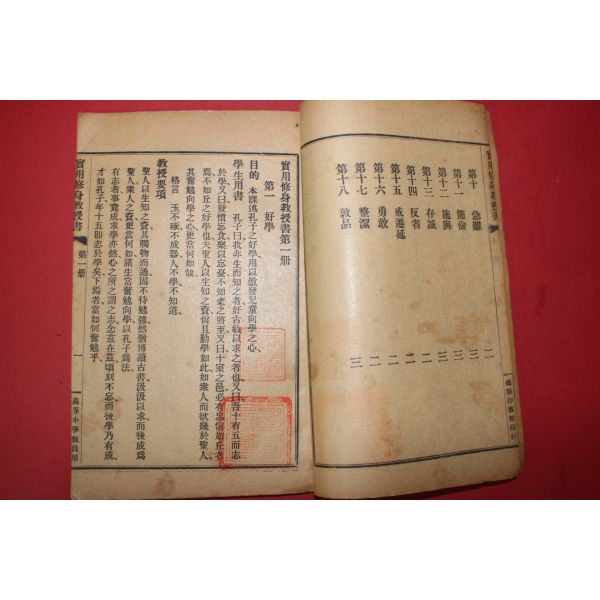 實用修身教授書
第十 急難 二
第十一 節儉 三
第十二 施與 三
第十三 存誠 二
第十四 反省 二
第十五 戒遷延 二
第十六 勇敢 二
第十七 整潔 二
第十八 敦品 三
商務印書館印行
實用修身教授書第一册
第一 好學
目的 本課述孔子之好學用以激發兒童向學之心、
學生用書 孔子曰我非生而知之者好古敏以求之者也又曰吾十有五而志
於學又曰發憤忘食樂以忘憂不知老之將至又曰十室之邑必有忠信如丘者
焉不如丘之好學也夫聖人以生知之資尙且勤學如此如衆人而欲幾於聖人、
其奮勉向學之心更當何如哉、
格言 玉不琢不成器人不學不知道、
教授要項
聖人以生知之資其觸物而通固不待勉強然猶博讀古書汲汲以求而後成爲
聖人衆人之資更當何如諸生當奮勉向學以孔子爲法、
有志者事竟成求學亦然心之所之謂之志念茲在茲頃刻不忘而後學乃有成、
才如孔子年十五卽志於學矣下焉者當如何奮勉乎、
實用修身教授書 第一册 一 高等小學教員用